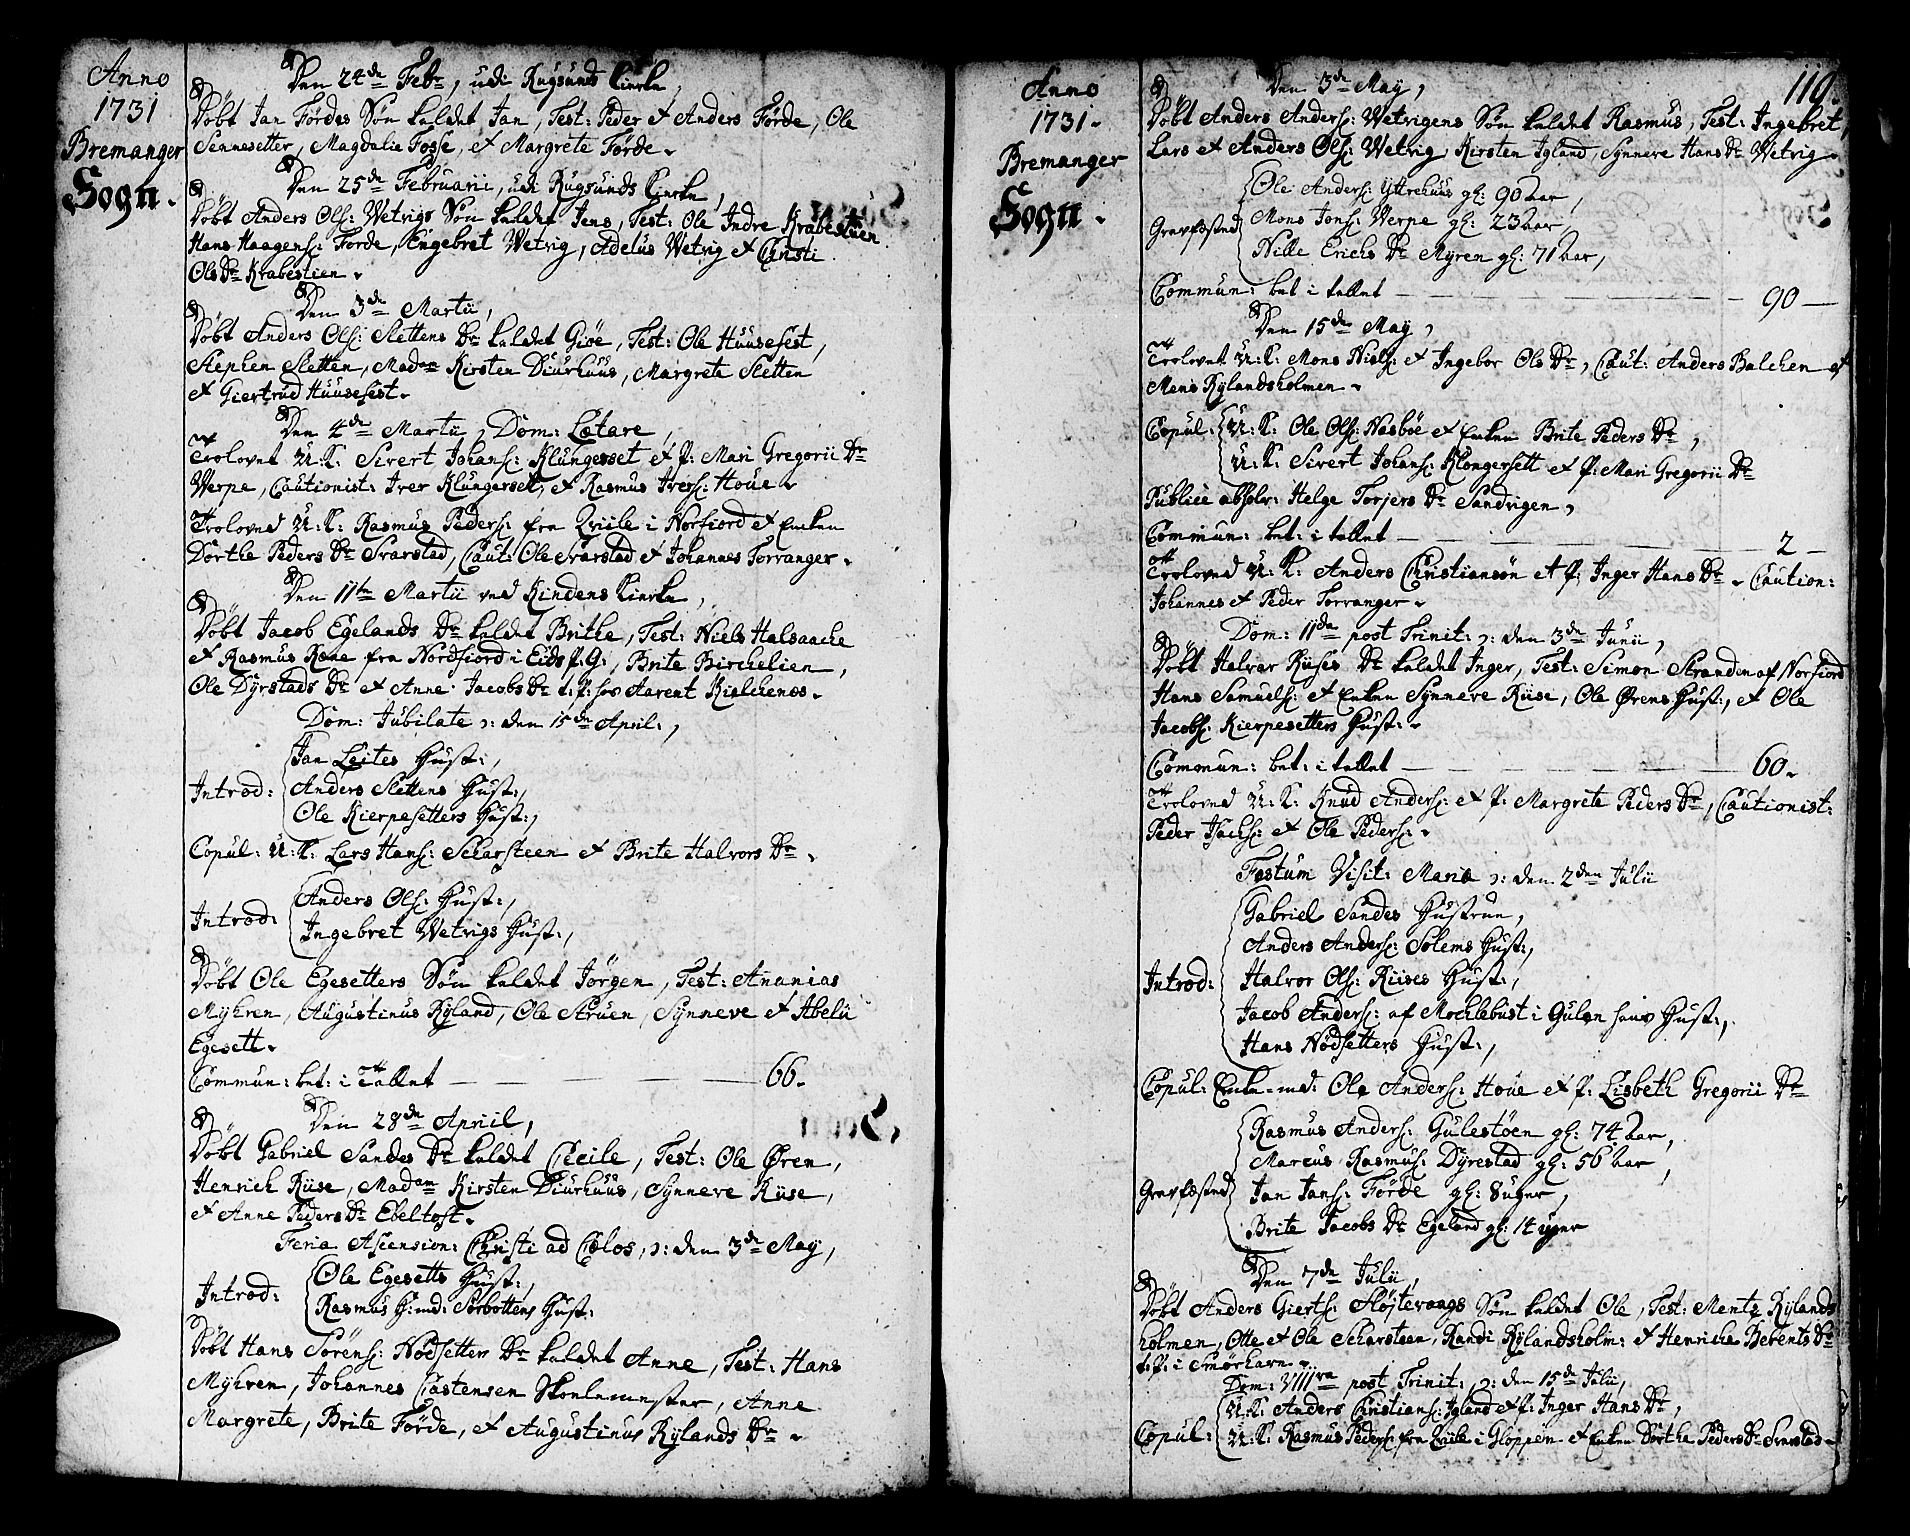 Anno
1731
Bremanger
Sogn.
Den 24de Febr, udi Rugsunds Kierke,
Døbt Jan Førdes Søn kaldet Jan, Test: Peder et Anders Førde, Ole
Sennesetter, Magdalie Fosse, et Margrete Førde.
Den 25de Februarii, udi Rugsunds Kierke,
Døbt Anders Ols: Wetvigs Søn kaldet Jens, Test: Ole Indre Krabestøen
Hans Haagens: Førde, Engebret Wetvig, Adelus Wetvig et Christi
Ols Dr Krabestien.
Den 3de Martii,
Døbt Anders Ols: Slettens Dr kaldet Giøe, Test: Ole Huusefest,
Stephen Sletten, Madam Kirsten Diurhuus, Margrete Sletten
et Giertrud Huusefest.
Den 4de Martii, Dom: Lætare,
Trolovet U: K: Sivert Johans: Klungerset et P: Mari Gregorii Dr
Werpe, Cautionist: Iver Klungerset, et Rasmus Ivers: Houe.
Troloved U: K: Rasmus Peders: fra Qviile i Norfiord et Enken
Dorthe Peders Dr Svarstad, Caut: Ole Svarstad et Johannes Torranger.
Den 11te Martii ved Kindens Kierke,
Døbt Jacob Egelands Dr kaldet Brithe, Test: Niels Halsaache
et Rasmus Rone fra Nordfiord i Eids P: G:, Brite Birchelien,
Ole Dyrstads Dr et Anne Jacobs Dr t: P: hos Aarent Kielchenes.
Dom: Jubilate ɔ: den 15de April:,
Introd:
Jan Leites Hust:,
Anders Slettens Hust:,
Ole Kierpesetters Hust:,
Copul: U: K: Lars Hans: Scharsteen et Brite Halvors Dr.
Introd:
Anders Ols: Hust:,
Ingebret Wetvigs Hust:,
Døbt Ole Egesetters Søn kaldet Jørgen, Test: Ananias
Myhren, Augustinus Ryland, Ole Struen, Synneve et Abelü
Egesett.
Commun: bet: i Tallet — 66.
Den 28de Apriil,
Døbt Gabriel Sandes Dr kaldet Cecile, Test: Ole Øren,
Henrich Riise, Madam Kirsten Diurhuus, Synneve Riise,
et Anne Peders Dr Ebeltoft.
Feria Ascension: Christi ad Coelos, ɔ: den 3de May,
Introd:
Ole Egesetts Hust:,
Rasmus H:md: Sørbottens Hust:
Døbt Hans Sørens: Nødsetters Dr kaldet Anne, Test: Hans
Myhren, Johannes Castensen Skolemester, Anne
Margrete, Brite Førde, et Augustinus Rylands Dr.
119.
Anno
1731.
Bremanger
Sogn.
Den 3de May,
Døbt Anders Anders: Wetvigens Søn kaldet Rasmus, Test: Ingebret,
Lars et Anders Ols: Wetvig, Kirsten Igland, Synneve Hans Dr Wetvig.
Gravfæsted
Ole Anders: Yttrehuus gl: 90 aar,
Mons Jons: Werpe gl: 23 aar,
Nille Erichs Dr Myren gl: 71 aar,
Commun: bet i tallet — 90 —
Den 15de May,
Trolovet U: K: Mons Niels: et Ingebor Ols Dr, Caut: Anders Balchen et
Mons Rylandsholmen.
Copul:
U: K: Ole Ols: Nasbøe et Enken Brite Peders Dr,
U: K: Sivert Johans: Klongersett et P: Mari Gregorii Dr
Publice absolv: Helge Torjers Dr Sandvigen,
Commun: bet: i tallet — 2 —
Troloved U: K: Anders Christiansøn et P: Inger Hans Dr. Caution:
Johannes et Peder Torranger.
Dom: 11da post Trinit: ɔ: den 3de Junii,
Døbt Halvor Riises Dr kaldet Inger, Test: Simon Stranden af Norfiord
Hans Samuels: et Enken Synneve Riise, Ole Ørens Hust:, et Ole
Jacobs: Kierpesetters Hust:.
Commun: bet: i tallet — 60.
Troloved U: K: Knud Anders: et P: Margrete Peders Dr, Cautionist:
Peder Isachs: et Ole Peders:.
Festum Visit: Mariæ ɔ: den 2den Julii
Introd:
Gabriel Sandes Hustrue,
Anders Anders: Solems Hust:,
Halvor Ols: Riises Hust:,
Jacob Anders: af Mochlebust i Gulen hans Hust:,
Hans Nødsetters Hust:,
Copul: Enke-md: Ole Anders: Houe et P: Lisbeth Gregorii Dr
Gravfæsted
Rasmus Anders: Gulestøen gl: 74 aar,
Marcus Rasmus: Dyrestad gl: 56 aar,
Jan Jans: Førde gl: 8 uger,
Brite Jacobs Dr Egeland gl: 14 uger
Den 7de Julii,
Døbt Anders Gierts: Fløjtevaags Søn kaldet Ole, Test: Mentz Rylands
holmen, Otte et Ole Scharsteen, Randi Rylandsholm: et Henriche Berents Dr
t: P: i Smørhavn.
Dom: VIIIva post Trinit:, ɔ: den 15de Julii,
Copul:
U: K: Anders Christians: Igland et P: Inger Hans Dr,
U: K: Rasmus Peders: fra Qviile i Gloppen et Enken Dorthe Peders Dr Svarstad.